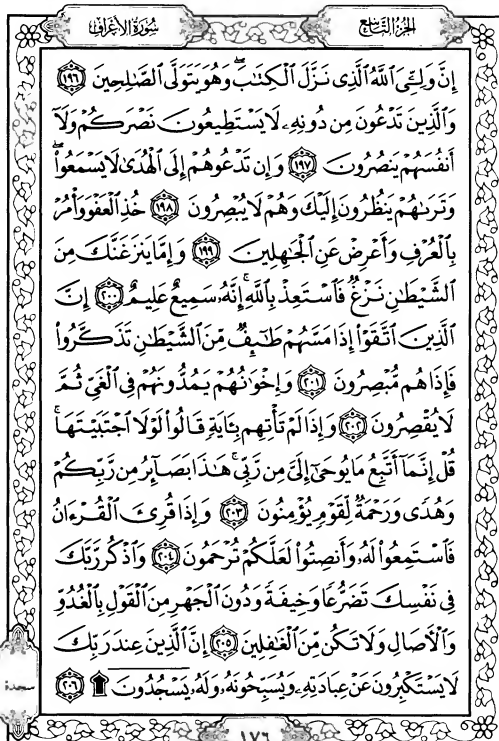 سُورَةُ الأَعْرَافِ
الجُزْءُ التَّاسِعُ
إِنَّ وَلِـِّۧيَ ٱللَّهُ ٱلَّذِى نَزَّلَ ٱلْكِتَٰبَ ۖ وَهُوَ يَتَوَلَّى ٱلصَّٰلِحِينَ ١٩٦
وَٱلَّذِينَ تَدْعُونَ مِن دُونِهِۦ لَا يَسْتَطِيعُونَ نَصْرَكُمْ وَلَآ
أَنفُسَهُمْ يَنصُرُونَ ١٩٧ وَإِن تَدْعُوهُمْ إِلَى ٱلْهُدَىٰ لَا يَسْمَعُوا۟ ۖ
وَتَرَىٰهُمْ يَنظُرُونَ إِلَيْكَ وَهُمْ لَا يُبْصِرُونَ ١٩٨ خُذِ ٱلْعَفْوَ وَأْمُرْ
بِٱلْعُرْفِ وَأَعْرِضْ عَنِ ٱلْجَٰهِلِينَ ١٩٩ وَإِمَّا يَنزَغَنَّكَ مِنَ
ٱلشَّيْطَٰنِ نَزْغٌ فَٱسْتَعِذْ بِٱللَّهِ ۚ إِنَّهُۥ سَمِيعٌ عَلِيمٌ ٢٠٠ إِنَّ
ٱلَّذِينَ ٱتَّقَوْا۟ إِذَا مَسَّهُمْ طَٰٓئِفٌ مِّنَ ٱلشَّيْطَٰنِ تَذَكَّرُوا۟
فَإِذَا هُم مُّبْصِرُونَ ٢٠١ وَإِخْوَٰنُهُمْ يَمُدُّونَهُمْ فِى ٱلْغَىِّ ثُمَّ
لَا يُقْصِرُونَ ٢٠٢ وَإِذَا لَمْ تَأْتِهِم بِـَٔايَةٍ قَالُوا۟ لَوْلَا ٱجْتَبَيْتَهَا ۚ
قُلْ إِنَّمَآ أَتَّبِعُ مَا يُوحَىٰٓ إِلَىَّ مِن رَّبِّى ۚ هَٰذَا بَصَآئِرُ مِن رَّبِّكُمْ
وَهُدًى وَرَحْمَةٌ لِّقَوْمٍ يُؤْمِنُونَ ٢٠٣ وَإِذَا قُرِئَ ٱلْقُرْءَانُ
فَٱسْتَمِعُوا۟ لَهُۥ وَأَنصِتُوا۟ لَعَلَّكُمْ تُرْحَمُونَ ٢٠٤ وَٱذْكُر رَّبَّكَ
فِى نَفْسِكَ تَضَرُّعًا وَخِيفَةً وَدُونَ ٱلْجَهْرِ مِنَ ٱلْقَوْلِ بِٱلْغُدُوِّ
وَٱلْـَٔاصَالِ وَلَا تَكُن مِّنَ ٱلْغَٰفِلِينَ ٢٠٥ إِنَّ ٱلَّذِينَ عِندَ رَبِّكَ
لَا يَسْتَكْبِرُونَ عَنْ عِبَادَتِهِۦ وَيُسَبِّحُونَهُۥ وَلَهُۥ يَسْجُدُونَ ۩ ٢٠٦
سجدة
١٧٦